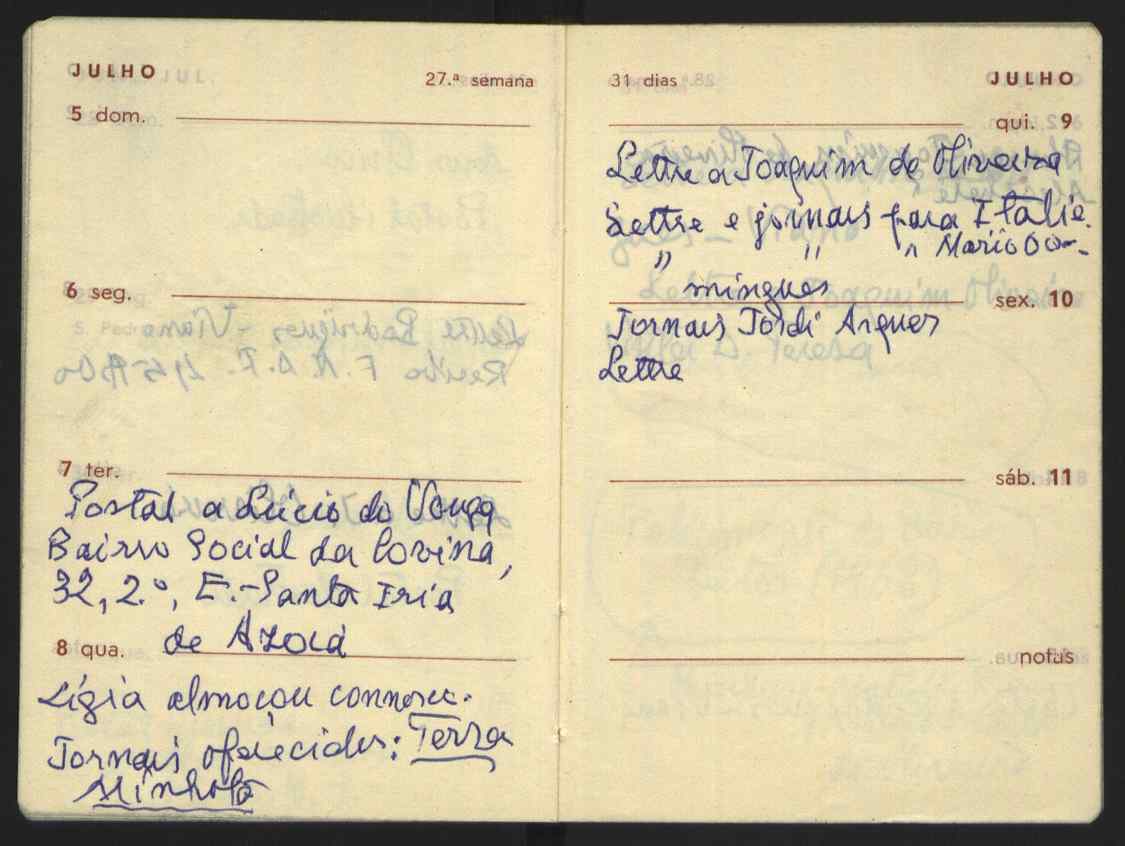 JULHO
27.ª semana
5 dom.
6 seg.
7 ter.
Postal a Lúcio do
Bairro Social da Covina,
32, 2.º, E.-Santa Iria
de Azoia
8 qua.
Lígia almoçou connosco.
Jornais oferecidos: Terra
Minhota
31 dias
JULHO
qui. 9
Lettre a Joaquim de Oliveira
Lettre e jornais para Italie.
" " " Mario Do-
mingues
sex. 10
Jornais Jordi Arquer
Lettre
sáb. 11
notas